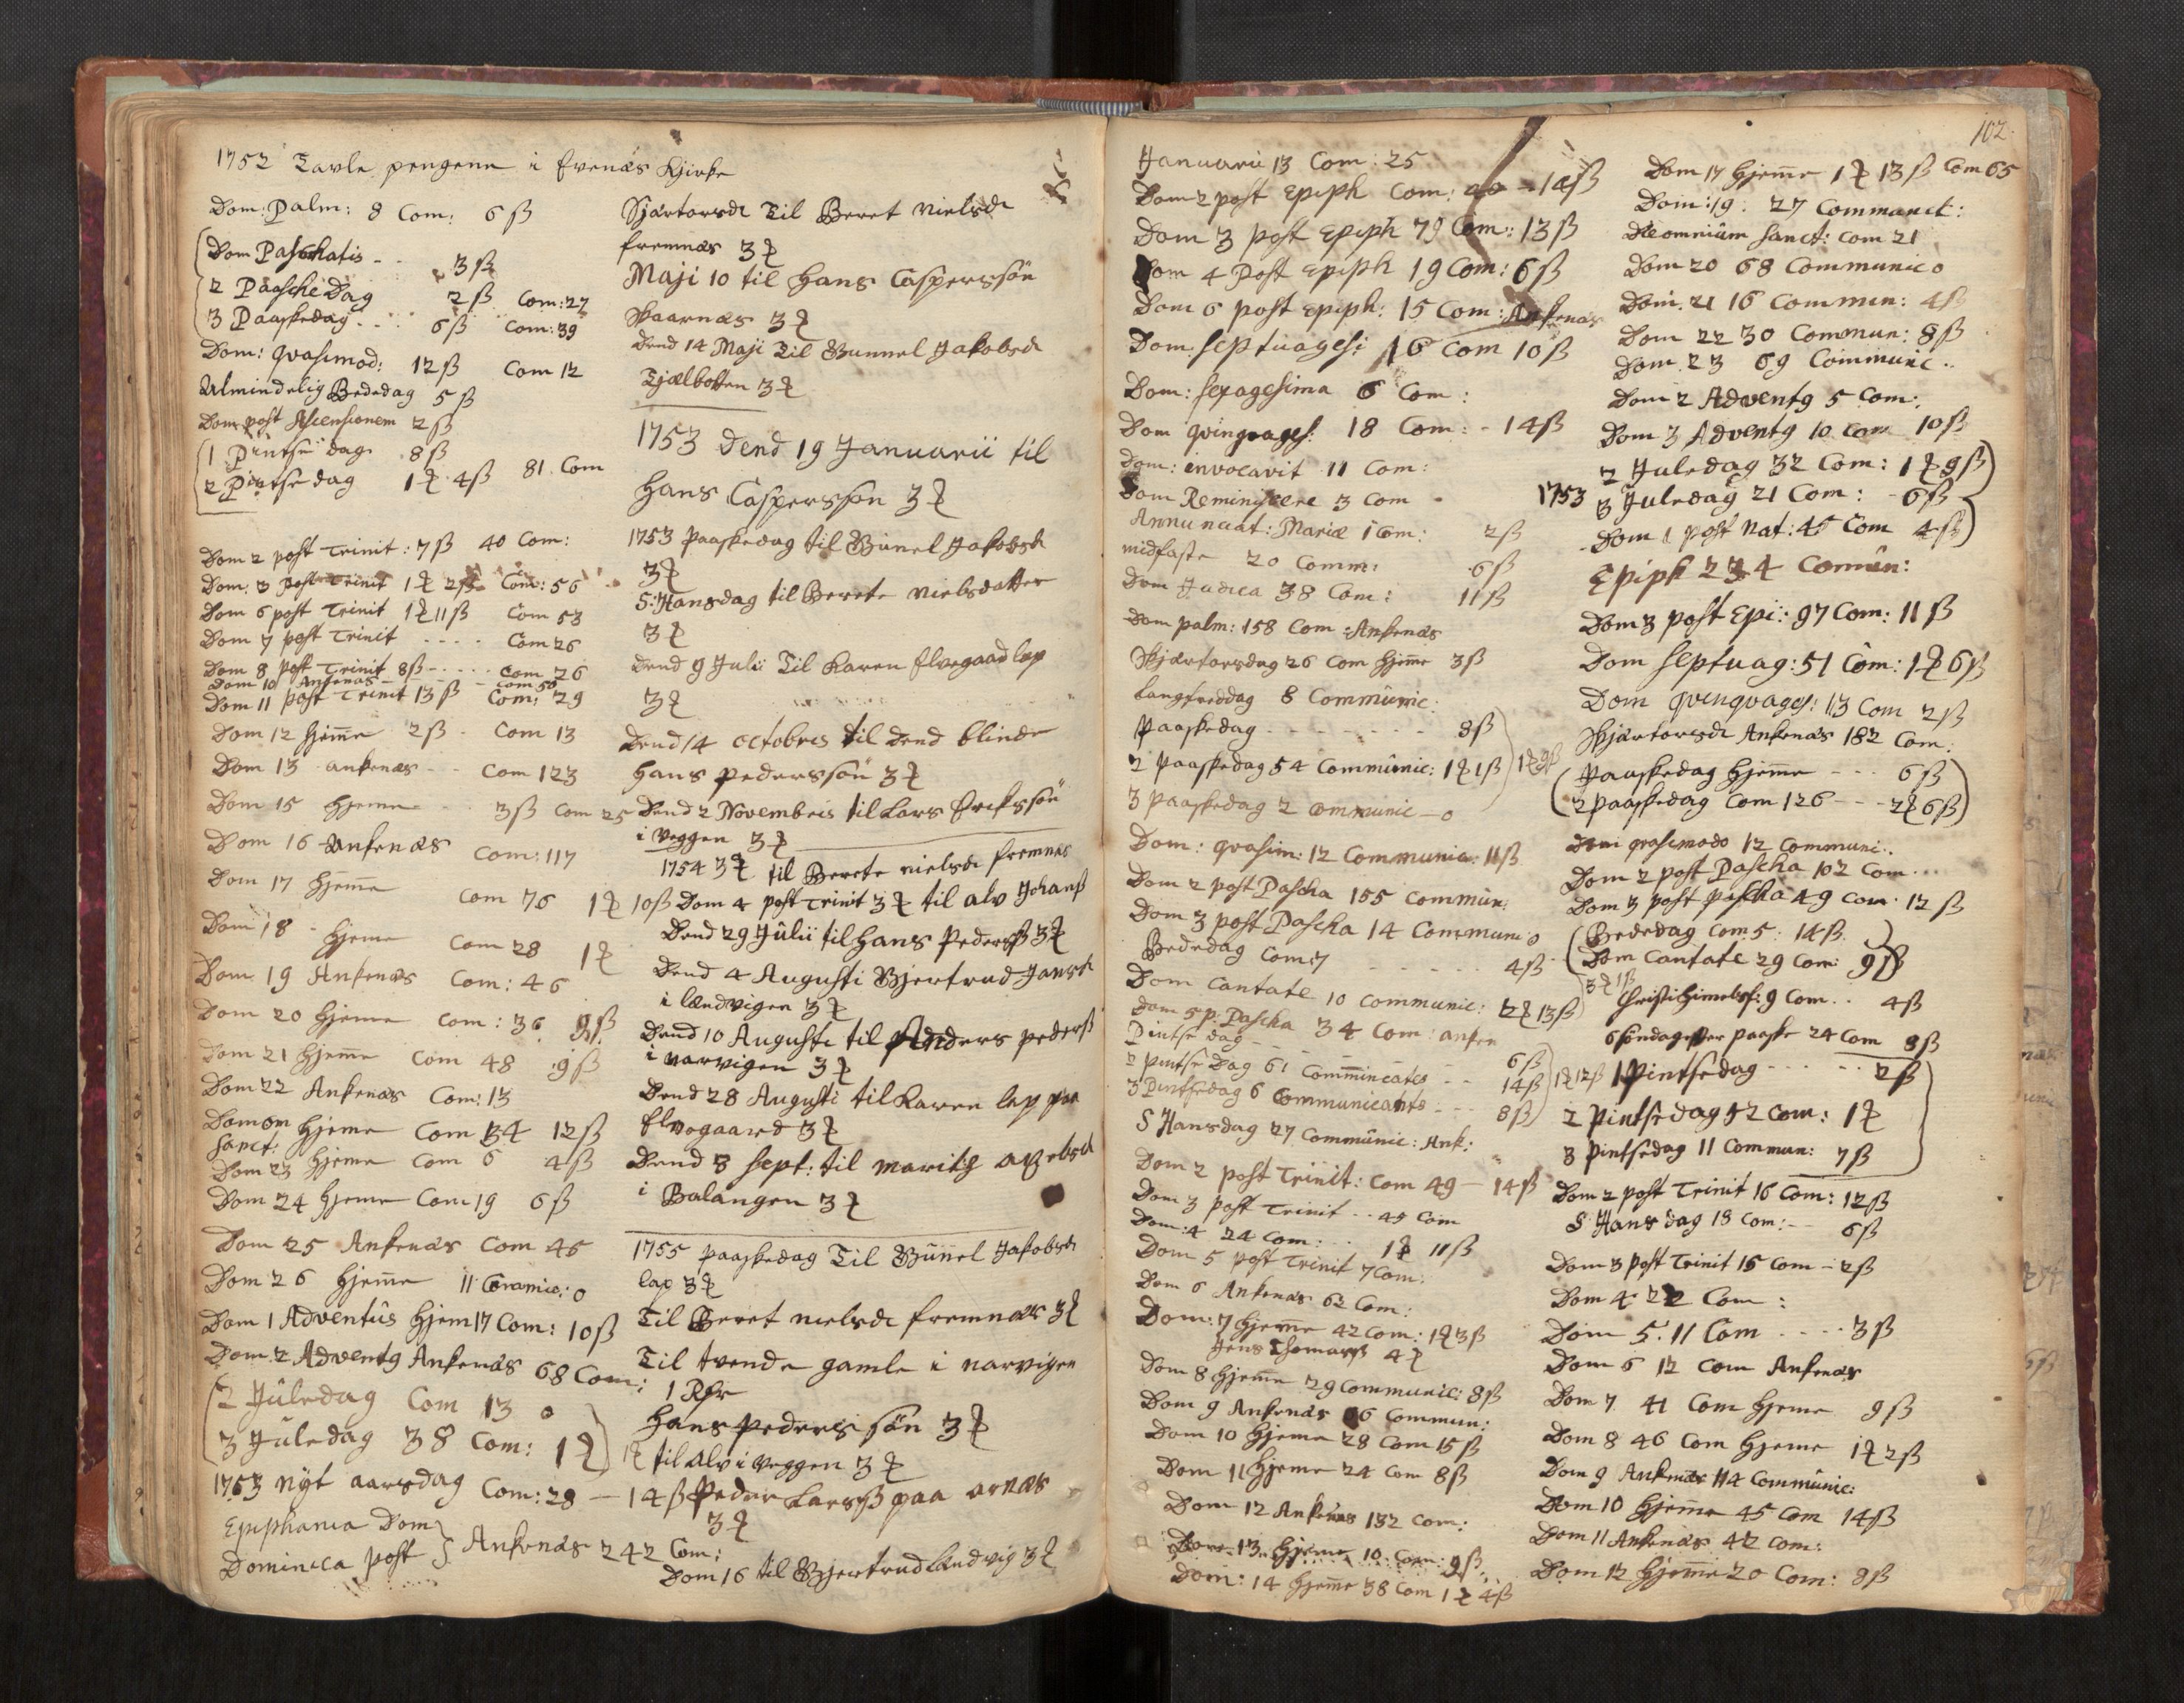 1752 Tavle pengene i Evenæs Kjirke
Dom: Palm: 8 Com: 6 ß
Dom Paschatis - - 3 ß
2 Paasche Dag 2 ß Com: 27
3 Paaskedag - - 6 ß Com: 39
Dom: qvasimod: 12 ß Com 12
Almindelig Bededag 5 ß
Dom post Ascensionem 2 ß
1 Pintse dag 8 ß
2 Pintse dag 1 ꝝ 4 ß 81 Com
Dom 2 post Trinit: 7 ß 40 Com:
Dom: 3 post Trinit 1 ꝝ 2 ß Com: 56
Dom 6 post Trinit 1 ꝝ 11 ß Com 53
Dom 7 post Trinit - - - - Com 26
Dom 8 post Trinit 8 ß - - - - Com 26
Dom 10 Ankenæs - - - Com 50
Dom 11 post Trinit 13 ß Com: 29
Dom 12 hjem̅e 2 ß - Com 13
Dom 13 ankenæs - - Com 123
Dom 15 hjeme - - 3 ß Com 25
Dom 16 Ankenæs Com: 117
Dom 17 hjem̅e Com 76 1 ꝝ 10 ß
Dom 18 - hjeme Com 28 1 ꝝ
Dom 19 Ankenæs Com: 46
Dom 20 hjeme Com: 36 9 ß
Dom 21 hjem̅e Com 48 9 ß
Dom 22 Ankenæs Com: 13
Dom om hjeme Com 34 12 ß
Sanct:
Dom 23 hjeme Com 6 4 ß
Dom 24 hjeme Com 19 6 ß
Dom 25 Ankenæs Com 46
Dom 26 hjem̅e 11 Comunic: 0
Dom 1 Adventûs hjem 17 Com: 10 ß
Dom 2 Advent9 Ankenæs 68 Com:
2 Jûledag Com 13 0
3 Jûledag 38 Com: 1 ꝝ 1 ꝝ
1753 nÿt aarsdag Com: 28 — 14 ß
Epiphania Dom
Dominica post Ankenæs 242 Com:
Skjærtorsd: Til Beret nielsd:
fremnæs 3 ꝝ
Maji 10 til Hans Casperssøn
Skaarnæs 3 ꝝ
Dend 14 Maji Til Bunnel Jakobsd:
Tjælbotten 3 ꝝ
1753 Dend 19 Januarii til
Hans Caspersson 3 ꝝ
1753 paaskedag til Bûnel Jakobsd:
3 ꝝ
S: Hansdag til Berete nielsdatter
3 ꝝ
Dend 9 Julii Til Karen Elvegaard lap
3 ꝝ
Dend 14 Octobris til Dend blinde
Hans pederssøn 3 ꝝ
Dend 2 Novembris til Lars Erikssøn
i veggen 3 ꝝ
1754 3 ꝝ til Berete nielsd: fremnes
Dom 4 post Trinit 3 ꝝ til alv Johanß
Dend 29 Jûlii til Hans Pederß 3 ꝝ
Dend 4 Augusti Bjertrud Jansd:
i Lændvigen 3 ꝝ
Dend 10 Augusti til Anders pederß
i narvigen 3 ꝝ
Dend 28 Augusti til Karen lap paa
Elvegaard 3 ꝝ
Dend 8 Sept: til marit
i Balangen 3 ꝝ
1755 paaskedag Til Bûnnel Jakobsd:
lap 3 ꝝ
Til Beret nielsd: fremnæs 3 ꝝ
Til tvende gamle i narvigen
1 Rdr
Hans Pederssøn 3 ꝝ
til Alv i veggen 3 ꝝ
Peder Larsß paa arnæs
3 ꝝ
Dom 16 til Bjertrud Lændvig 3 ꝝ
102.
Januarii 13 Com: 25
Dom 2 post Epiph Com: 14 ß
Dom 3 post Epiph 79 Com: 13 ß
Dom 4 Post Epiph 19 Com: 6 ß
Dom 6 post Epiph: 15 Com: Ankenæs
Dom Septuages: 16 Com 10 ß
Dom: Sexagesima 6 Com:
Dom qvinqvages: 18 Com: - 14 ß
Dom: invocavit 11 Com:
Dom Reminiscere 3 Com -
Annunciat: Mariæ 1 Com: 2 ß
midfaste 20 Comm: 6 ß
Dom Judica 38 Com: 11 ß
Dom palm: 158 Com: Ankenæs
Skjærtorsdag 26 Com hjem̅e 3 ß
Langfreddag 8 Commûnic:
paaskedag - - - - - - 8 ß
2 paaskedag 54 Commûnic: 1 ꝝ 1 ß 1 ꝝ 9 ß
3 paaskedag 2 Communic — 0
Dom: qvasim: 12 Communic: 11 ß
Dom 2 post Pascha 155 Commun:
Dom 3 post Pascha 14 Commun: 0
Bededag Com: 7 - - - - - 4 ß
Dom Cantate 10 Communic: 2 ꝝ 13 ß 3 ꝝ 1 ß
Dom 5 p: Pascha 34 Com: anken
Pintse dag - - - - 6 ß
2 pintse Dag 61 Commūnicates - - 14 ß 1 ꝝ 12 ß
3 Pintsedag 6 Communicants - - 8 ß
S Hansdag 27 Commûnic: Ank:
Dom 2 post Trinit: Com 49 — 14 ß
Dom 3 post Trinit - - 45 Com
Dom: 4 24 Com: - - 1 ꝝ 11 ß
Dom 5 post Trinit 7 Com:
Dom 6 Ankenæs 62 Com:
Dom: 7 hjeme 42 Com: 1 ꝝ 3 ß
Jens Thomasß 4 ꝝ
Dom 8 hjem̅e 29 Communic: 8 ß
Dom 9 Ankenæs 66 Commun:
Dom 10 hjeme 28 Com 15 ß
Dom 11 hjeme 24 Com 8 ß
Dom 12 Ankenæs 132 Com:
Dom 13 hjeme 10 Com: 9 ß
Dom: 14 hjem̅e 38 Com 1 ꝝ 4 ß
Dom 17 hjem̅e 1 ꝝ 13 ß Com 65
Dom: 19. 27 Communic:
Die omniûm Sanct: Com 21
Dom 20 68 Communic 0
Dom: 21 16 Commun: 4 ß
Dom 22 30 Commun: 8 ß
Dom 23 69 Communic..
Dom 2 Advent9 5 Com:
Dom 3 Advent9 10 Com 10 ß
2 Juledag 32 Com: 1 ꝝ 9 ß
1753 3 Juledag 21 Com: - 6 ß
Dom 1 post Nat: 45 Com 4 ß
Epiph 234 Comûn:
Dom 3 post Epi: 97 Com: 11 ß
Dom Septuag: 51 Com: 1 ꝝ 6 ß
Dom qvinqvages: 113 Com 2 ß
Skjærtorsd: Ankenæs 182 Com:
paaskedag hjem̅e - - - 6 ß
2 paaskedag Com 126 - - - 2 ꝝ 6 ß
Dom qvasimodo 12 Communi:.
Dom 2 post Pascha 102 Com...
Dom 3 post pascha 49 Com: 12 ß
Bededag Com 5: 14 ß
Dom Cantate 29 Com: 9 ß
Christi Himelsf: 9 Com.. 4 ß
6 søndag efter paaske 24 Com 8 ß
1 Pintsedag - - - - - 2 ß
2 Pintsedag 52 Com: 1 ꝝ
3 Pintsedag 11 Commun: 7 ß
Dom 2 post Trinit 16 Com: 12 ß
S Hans dag 18 Com: - - 6 ß
Dom 3 post Trinit 15 Com - 2 ß
Dom 4 22 Com:
Dom 5. 11 Com - - - - 3 ß
Dom 6 12 Com Ankenæs
Dom 7 41 Com hjeme 9 ß
Dom 8 46 Com hjeme 1 ꝝ 2 ß
Dom 9 Ankenæs 114 Commûnic:
Dom 10 hjem̅e 45 Com 14 ß
Dom 11 Ankenæs 42 Com:
Dom 12 hjem̅e 20 Com: 8 ß